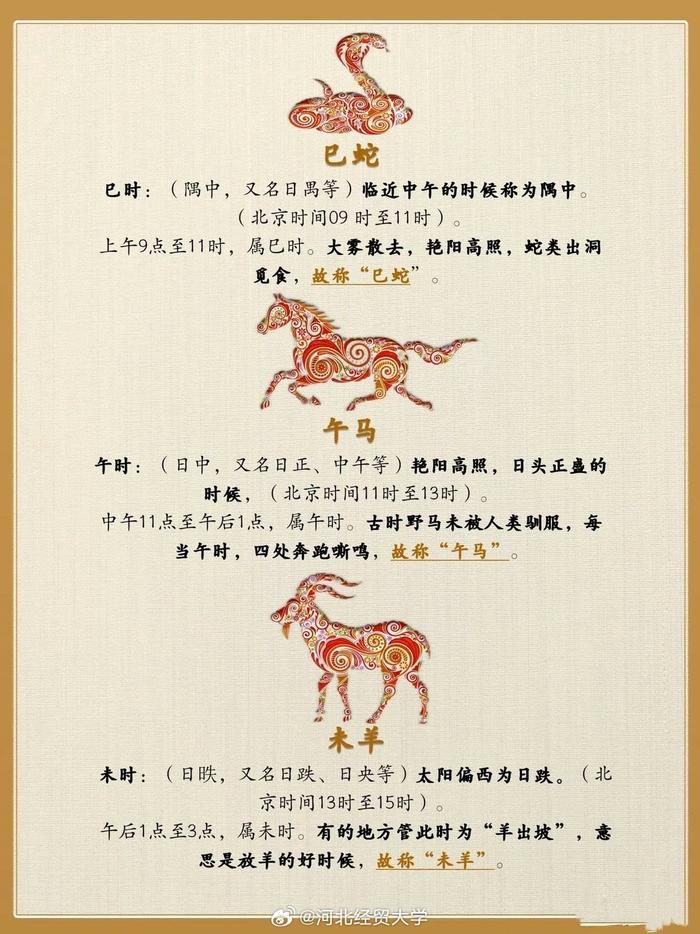 巳蛇
巳时：（隅中，又名日禺等）临近中午的时候称为隅中。
（北京时间09 时至11时）。
上午9点至11时，属巳时。大雾散去，艳阳高照，蛇类出洞
觅食，故称“巳蛇”。
午马
午时：（日中，又名日正、中午等）艳阳高照，日头正盛的
时候，（北京时间11时至13时）。
中午11点至午后1点，属午时。古时野马未被人类驯服，每
当午时，四处奔跑嘶鸣，故称“午马”。
未羊
未时：（日昳，又名日跌、日央等）太阳偏西为日跌。（北
京时间13时至15时）。
午后1点至3点，属未时。有的地方管此时为“羊出坡”，意
思是放羊的好时候，故称“未羊”。
@河北经贸大学